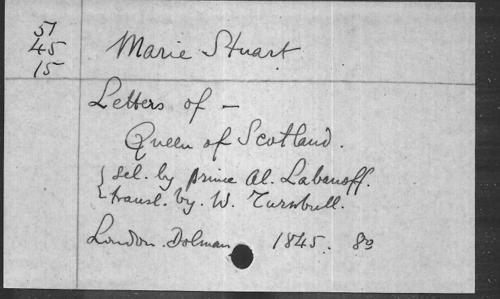 51
45
15
Marie Stuart
Letters of –
Queen of Scotland.
{ sel. by prince Al. Labanoff.
{ transl. by. W. Turnbull.
London. Dolman 1845. 8º